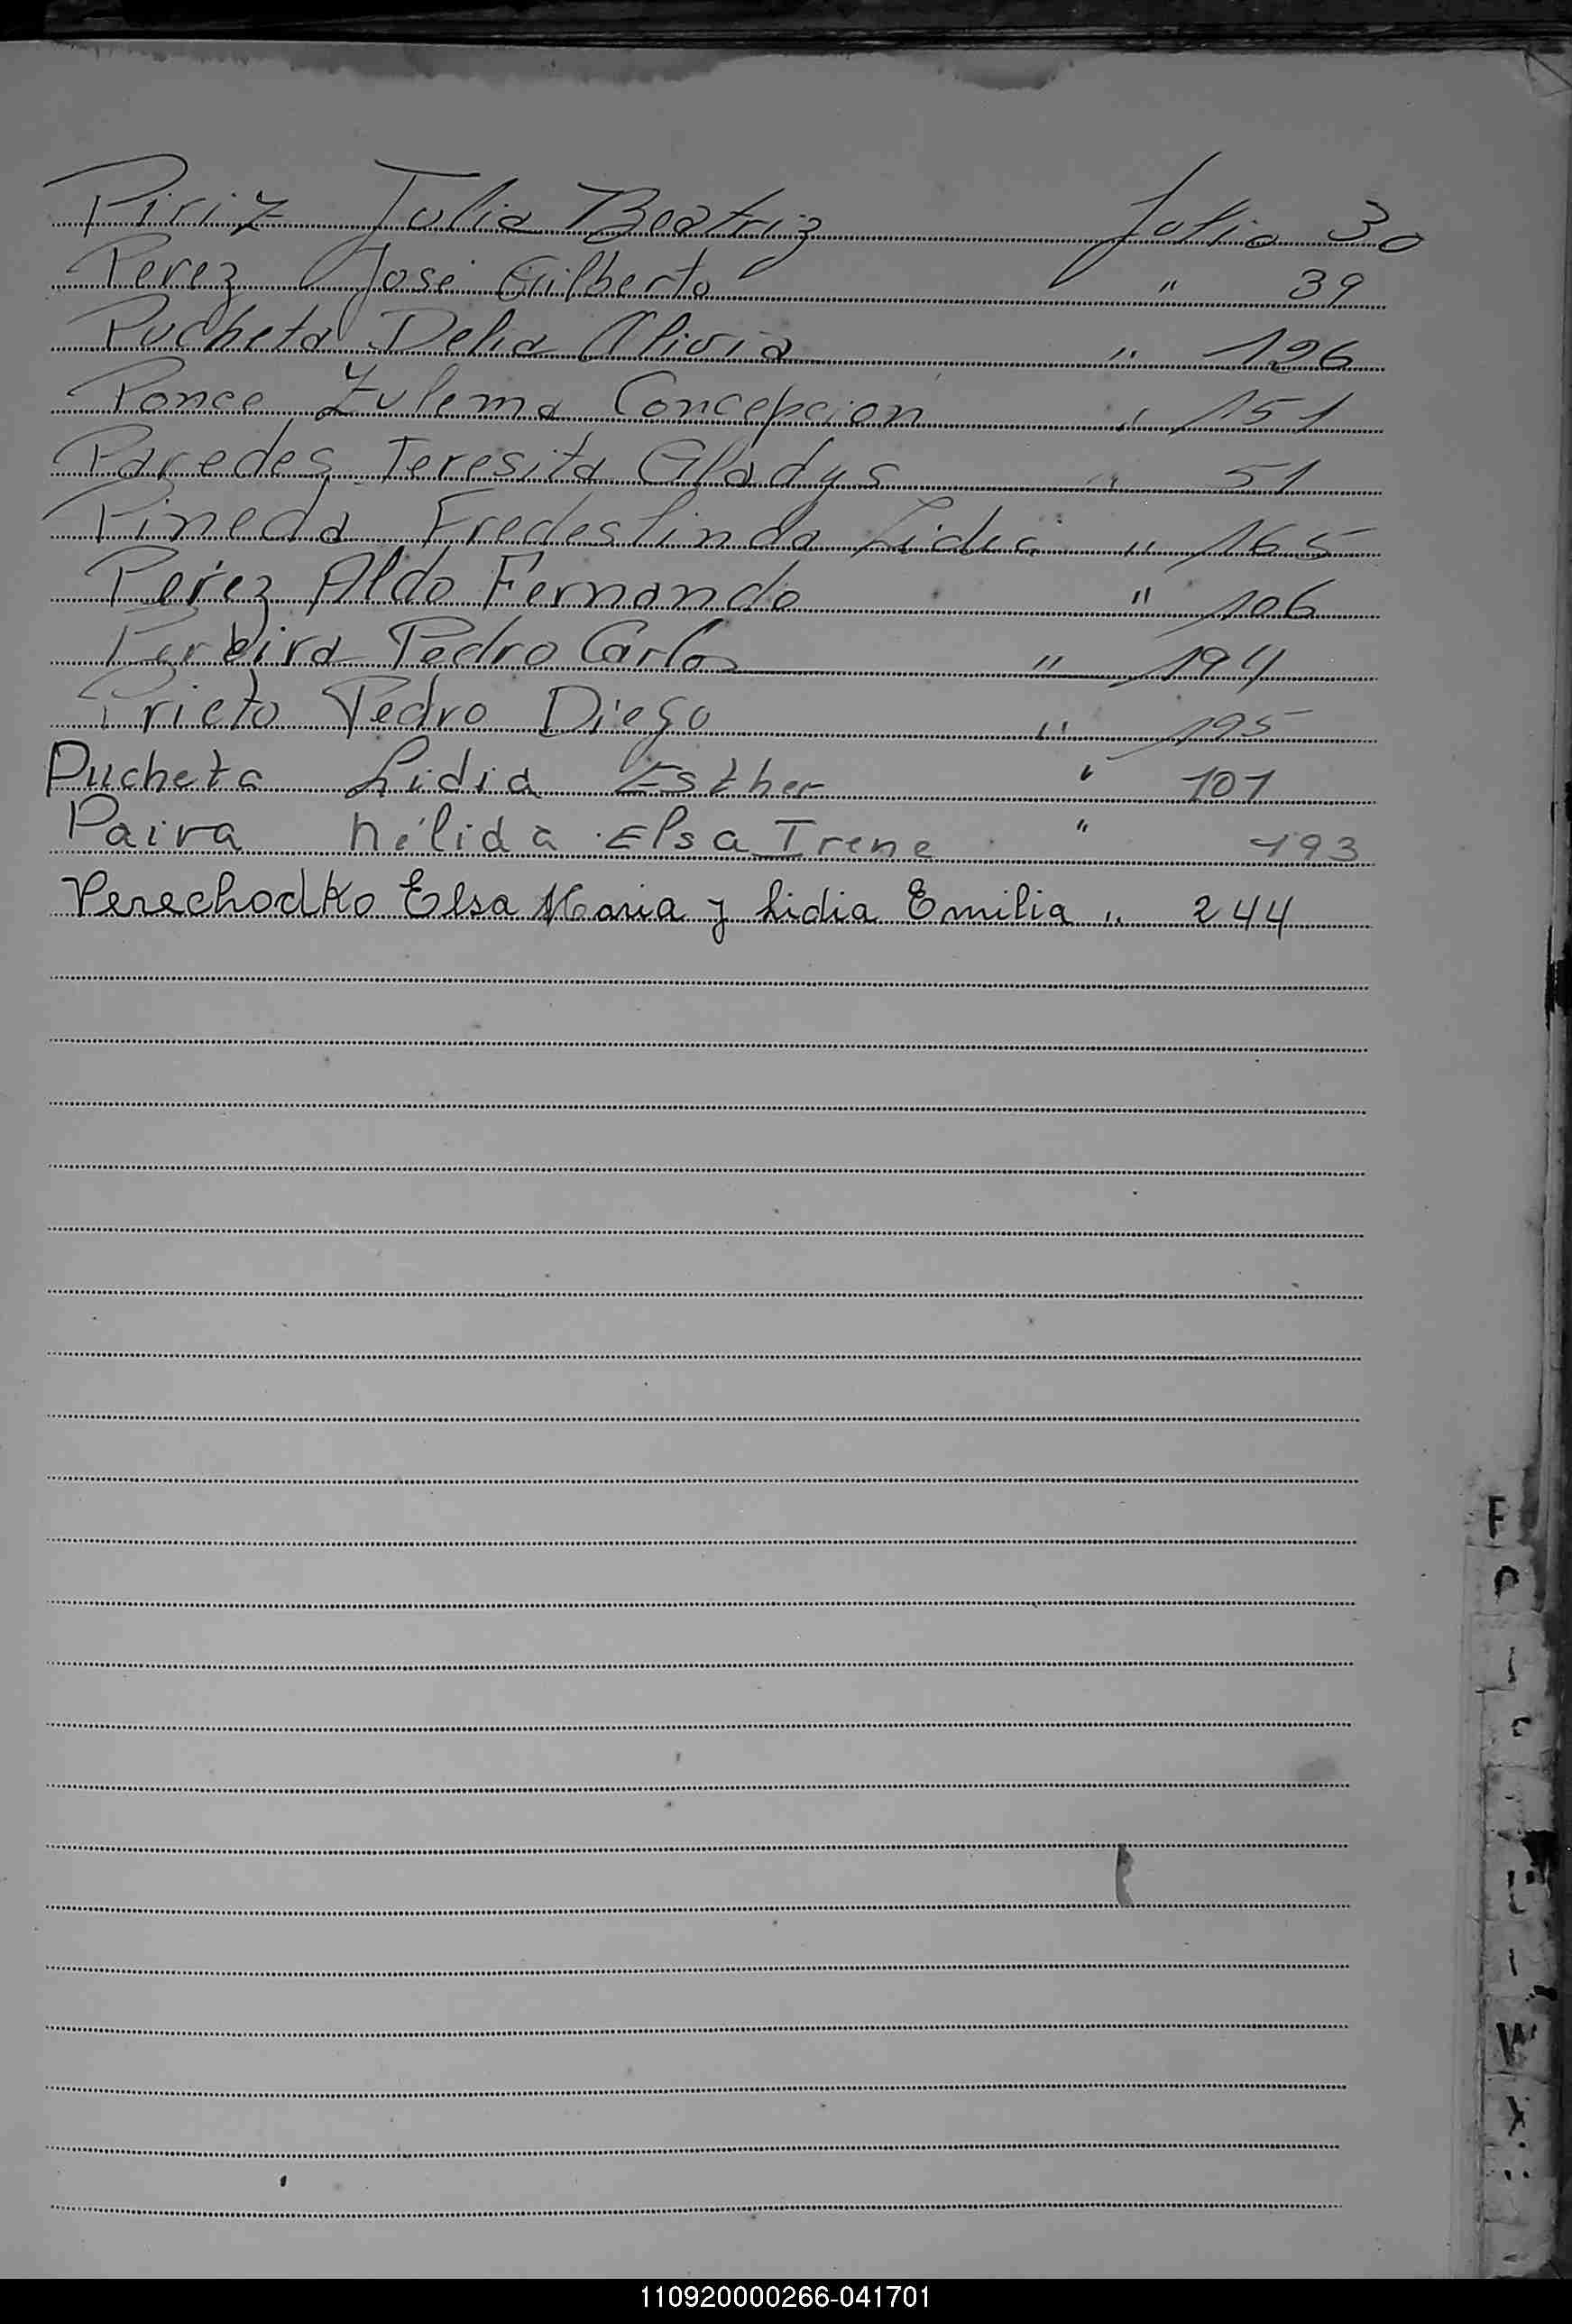 Piriz Julia Beatriz Folio 30
Perez José Gilberto " 39
Pucheta Delia Olivia " 126
Ponce Zulema Concepcion " 151
Paredes Teresita Gladys " 51
Pineda Fredeslinda Lidia " 165
Perez Aldo Fernando " 106
Pereira Pedro Carlos " 194
Prieto Pedro Diego " 195
Pucheta Lidia Esther " 101
Paiva Nélida Elsa Irene " 193
Perechodko Elsa Maria y Lidia Emilia " 244
P
W
110920000266-041701